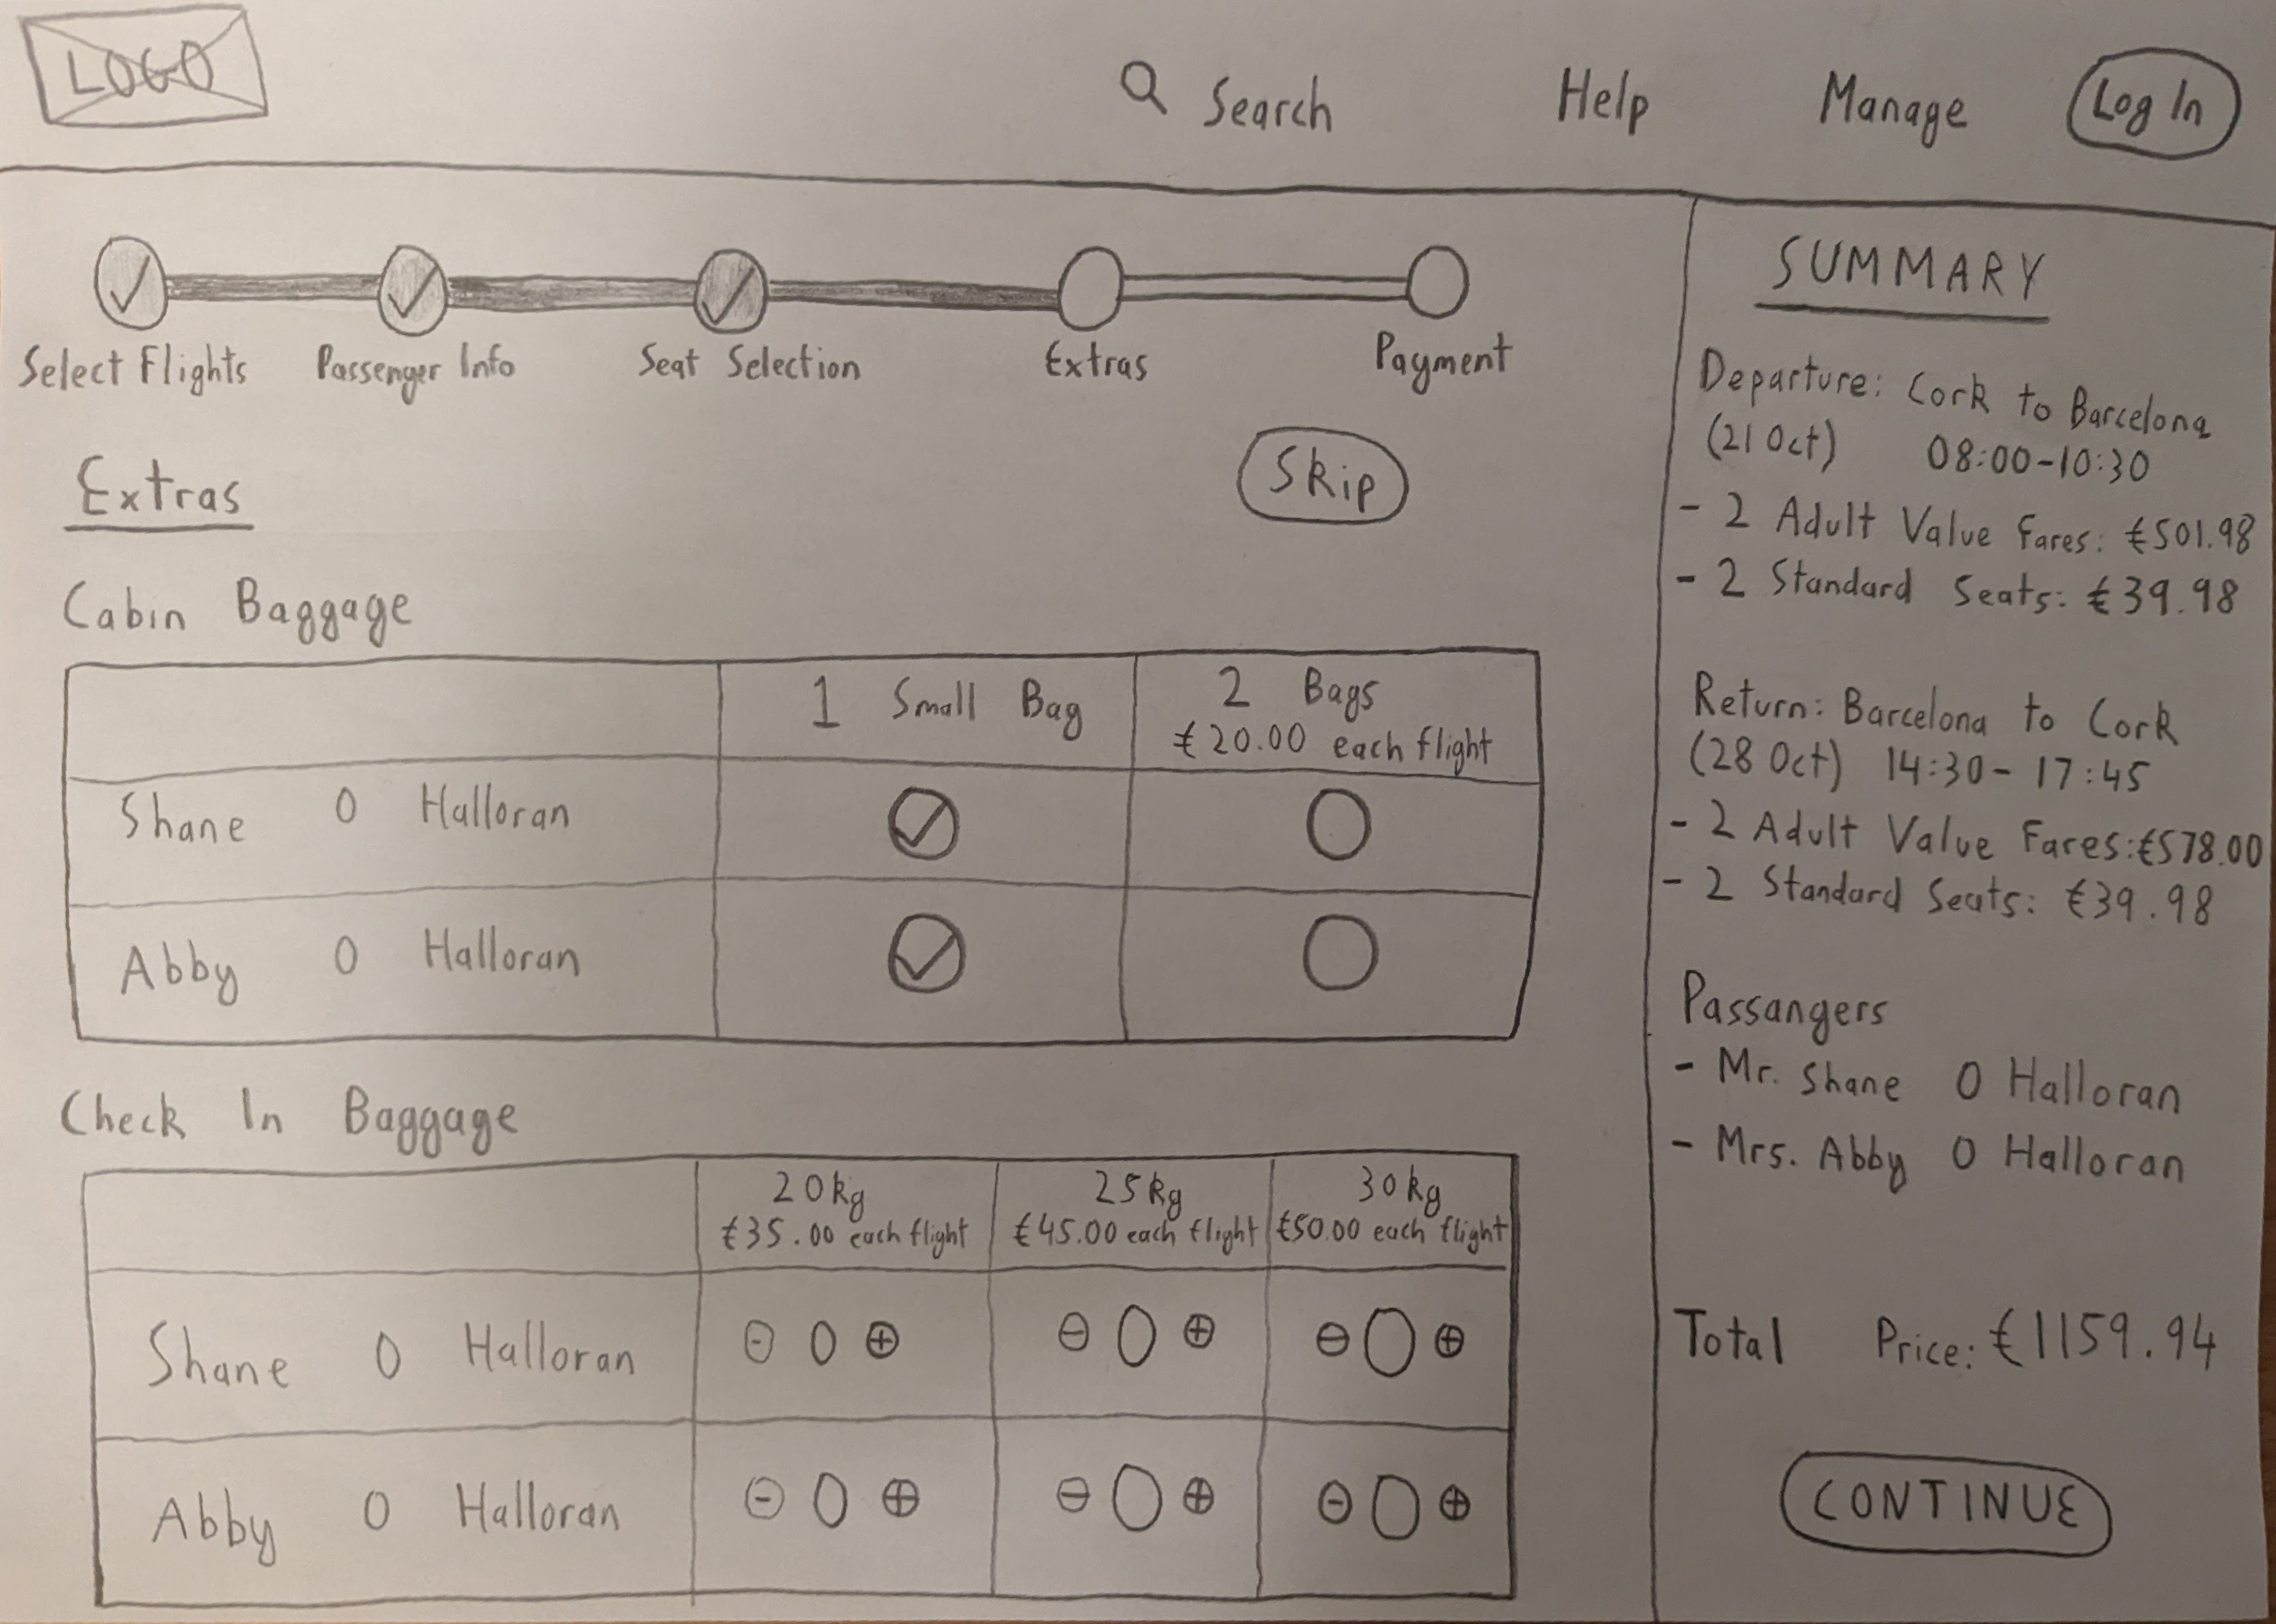 LOGO
Search
Help
Manage
Log In
Select Flights
Passenger Info
Seat Selection
Extras
Payment
Extras
Skip
Cabin Baggage
1 Small Bag
2 Bags
€20.00 each flight
Shane O Halloran
Abby O Halloran
Check In Baggage
20kg
€35.00 each flight
25kg
€45.00 each flight
30kg
€50.00 each flight
Shane O Halloran
- 0 +
- 0 +
- 0 +
Abby O Halloran
- 0 +
- 0 +
- 0 +
SUMMARY
Departure: Cork to Barcelona
(21 Oct) 08:00-10:30
- 2 Adult Value Fares: €501.98
- 2 Standard Seats: €39.98
Return: Barcelona to Cork
(28 Oct) 14:30-17:45
- 2 Adult Value Fares: €578.00
- 2 Standard Seats: €39.98
Passangers
- Mr. Shane O Halloran
- Mrs. Abby O Halloran
Total Price: €1159.94
CONTINUE